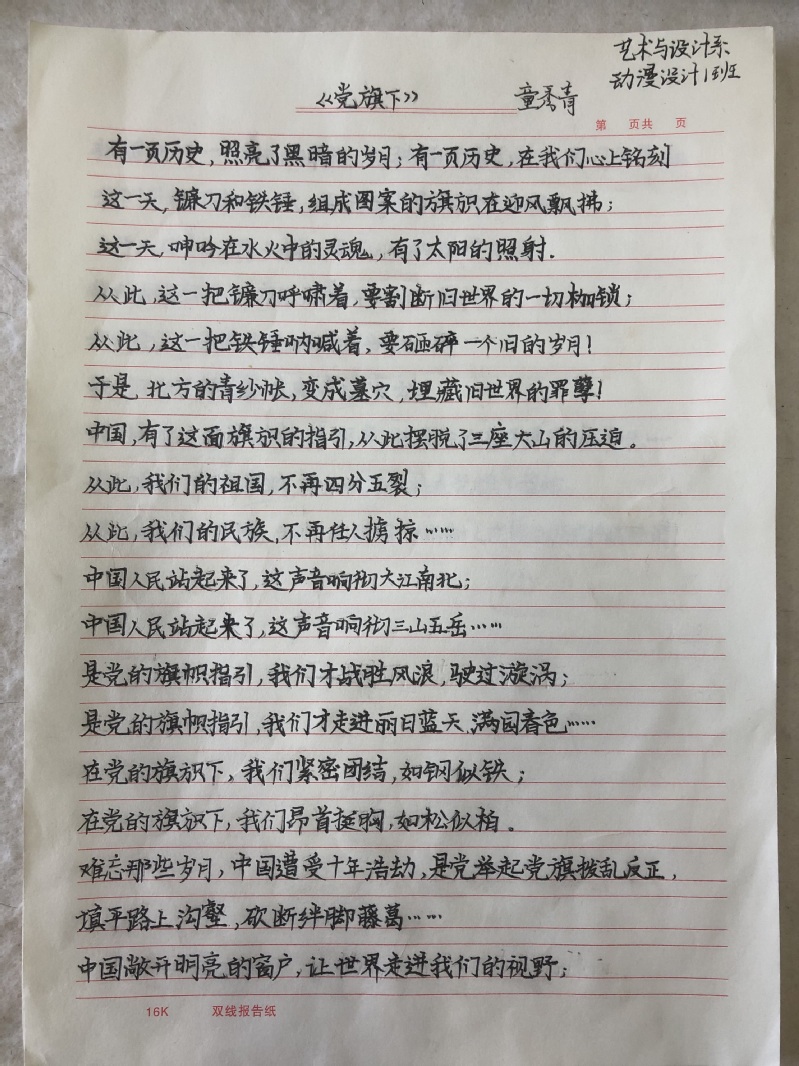 艺术与设计系
动漫设计1班
《党旗下》 童秀青
第 页共 页
有一页历史,照亮了黑暗的岁月;有一页历史,在我们心上铭刻
这一天,镰刀和铁锤,组成图案的旗识在迎风飘拂;
这一天,呻吟在水火中的灵魂,有了太阳的照射.
从此,这一把镰刀呼啸着,要割断旧世界的一切枷锁;
从此,这一把铁锤呐喊着,要砸碎一个旧的岁月!
于是,北方的青纱帐,变成墓穴,埋藏旧世界的罪孽!
中国,有了这面旗识的指引,从此摆脱了三座大山的压迫。
从此,我们的祖国,不再四分五裂;
从此,我们的民族,不再任人掳掠……
中国人民站起来了,这声音响彻大江南北;
中国人民站起来了,这声音响彻三山五岳……
是党的旗帜指引,我们才战胜风浪,驶过漩涡;
是党的旗帜指引,我们才走进丽日蓝天,满园春色……
在党的旗识下,我们紧密团结,如钢似铁;
在党的旗识下,我们昂首挺胸,如松似柏。
难忘那些岁月,中国遭受十年浩劫,是党举起党旗拨乱反正,
填平路上沟壑,砍断绊脚藤葛……
中国敞开明亮的窗户,让世界走进我们的视野;
16K 双线报告纸